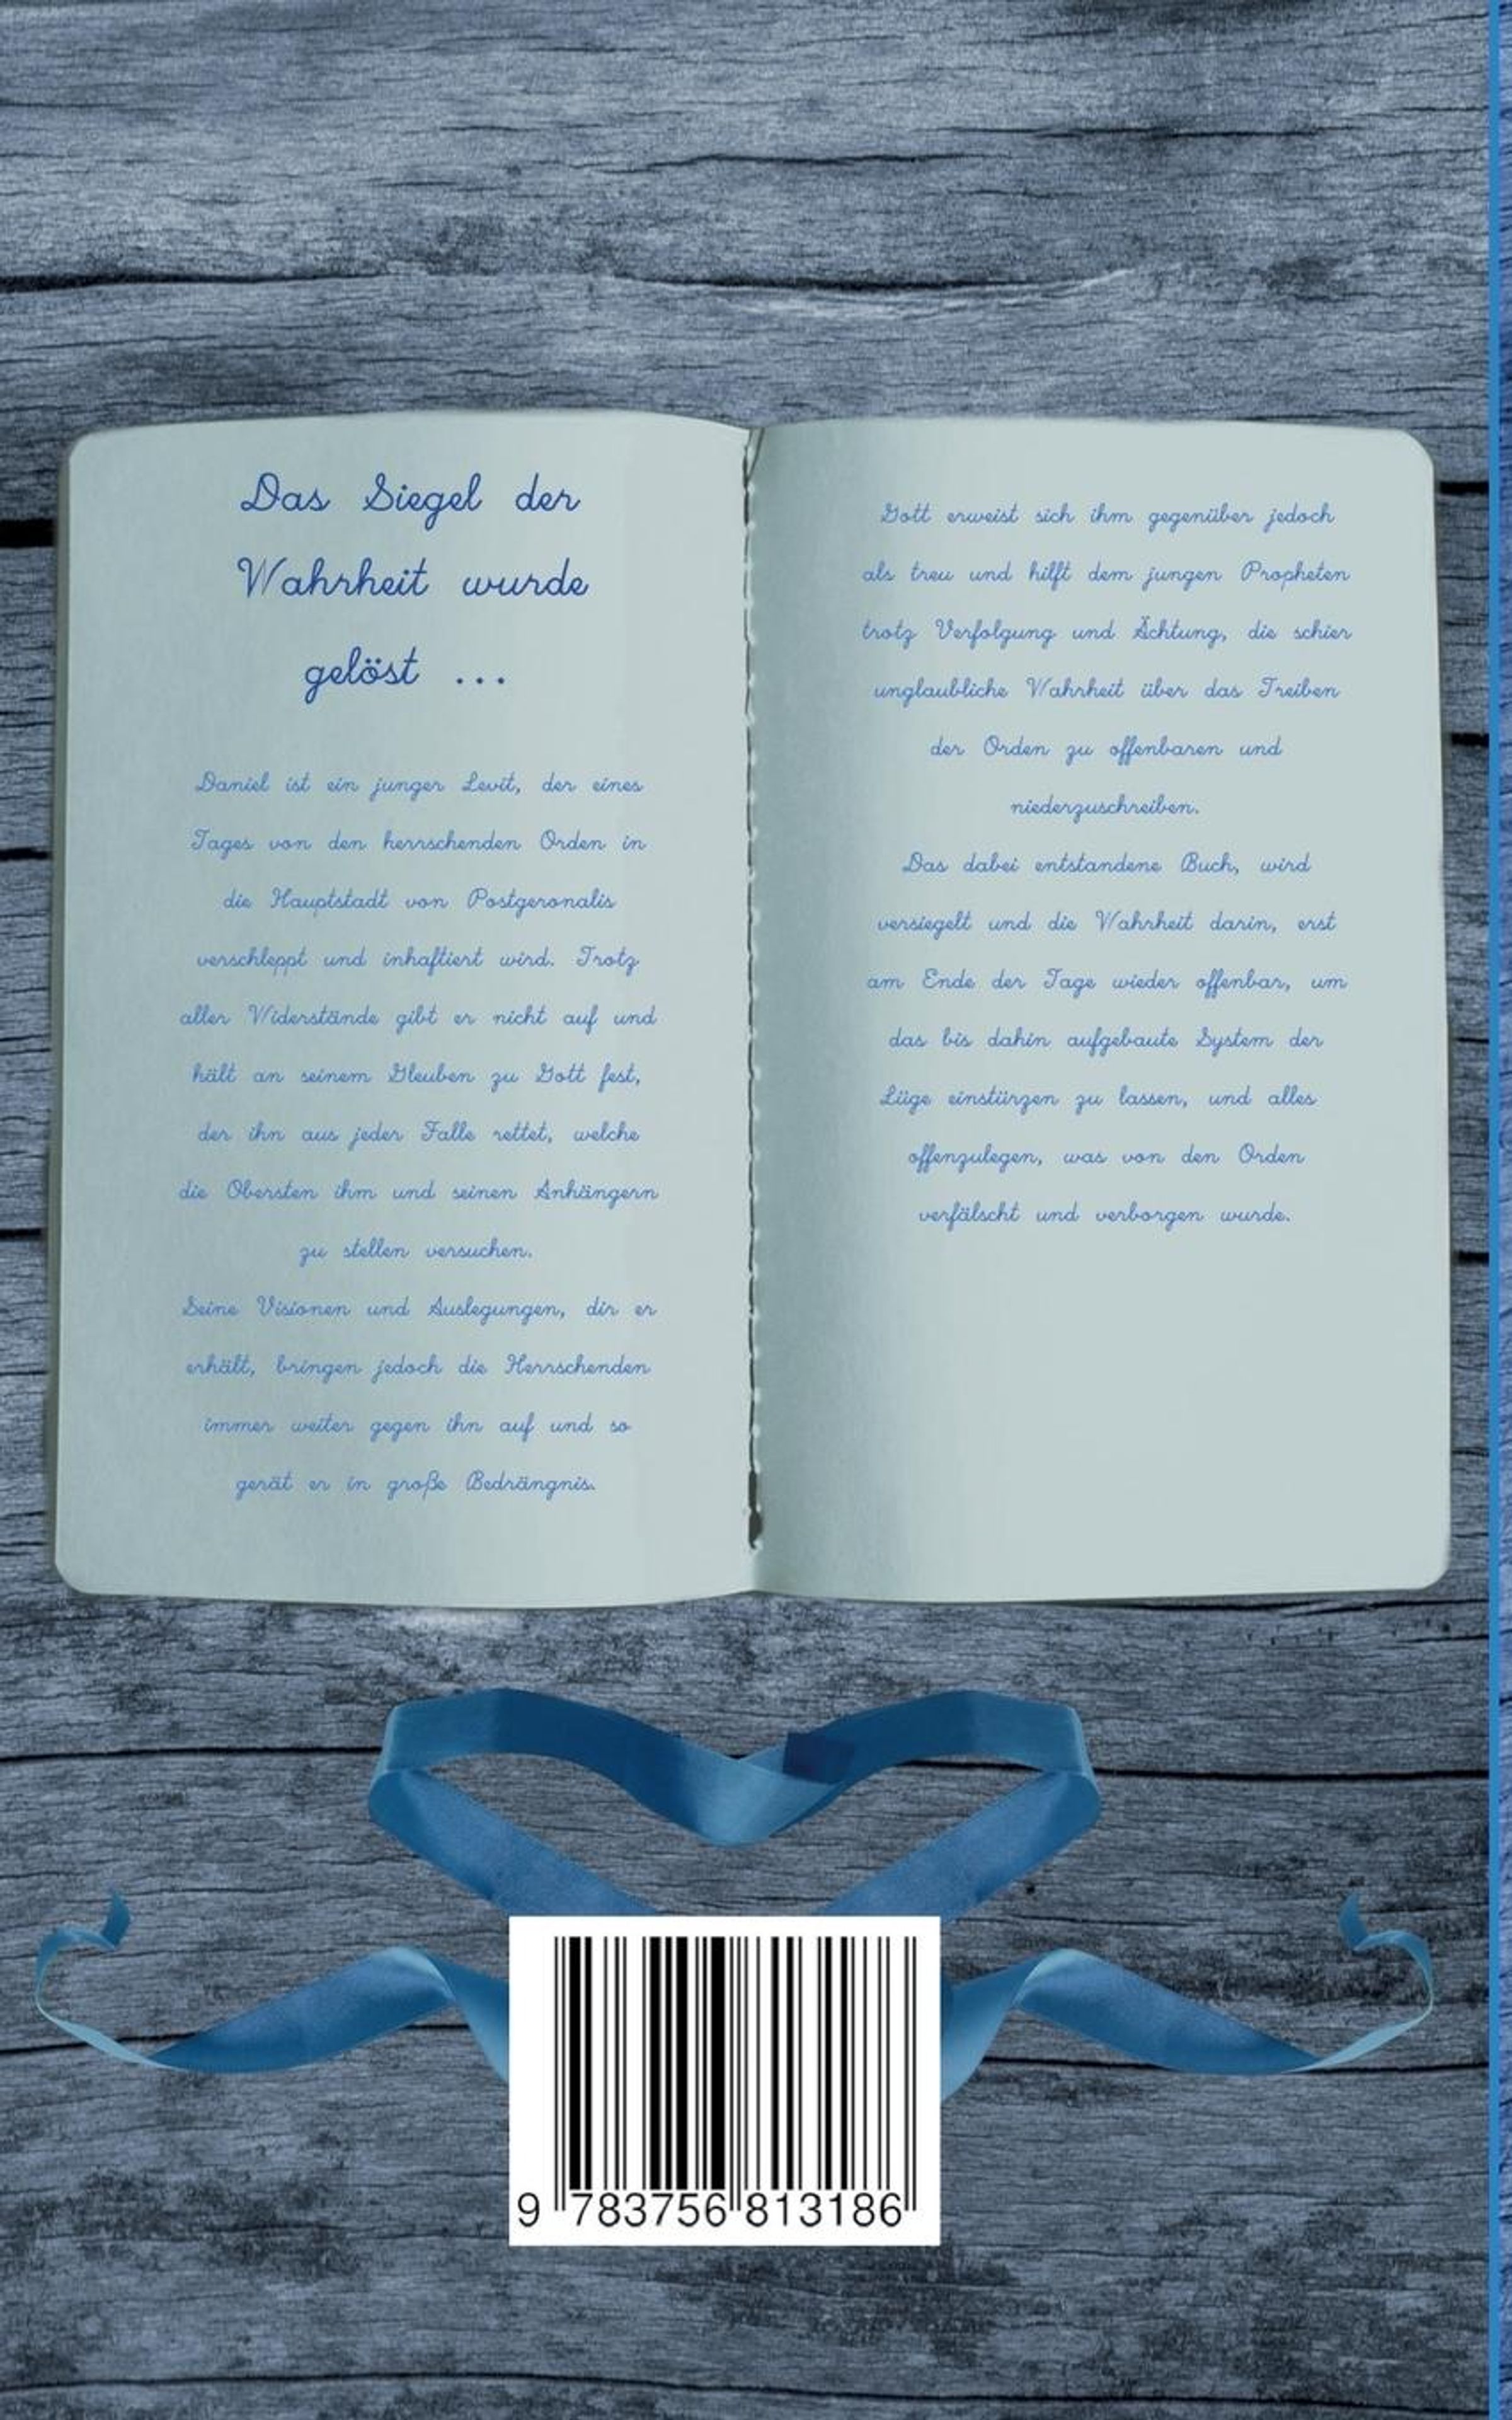 Das Siegel der
Wahrheit wurde
gelöst ...
Daniel ist ein junger Levit, der eines
Tages von den herrschenden Orden in
die Hauptstadt von Postgeronalis
verschleppt und inhaftiert wird. Trotz
aller Widerstände gibt er nicht auf und
hält an seinem Gleuben zu Gott fest,
der ihn aus jeder Falle rettet, welche
die Obersten ihm und seinen Anhängern
zu stellen versuchen.
Seine Visionen und Auslegungen, dir er
erhält, bringen jedoch die Herrschenden
immer weiter gegen ihn auf und so
gerät er in große Bedrängnis.
Gott erweist sich ihm gegenüber jedoch
als treu und hilft dem jungen Propheten
trotz Verfolgung und Ächtung, die schier
unglaubliche Wahrheit über das Treiben
der Orden zu offenbaren und
niederzuschreiben.
Das dabei entstandene Buch, wird
versiegelt und die Wahrheit darin, erst
am Ende der Tage wieder offenbar, um
das bis dahin aufgebaute System der
Lüge einstürzen zu lassen, und alles
offenzulegen, was von den Orden
verfälscht und verborgen wurde.
9 783756 813186